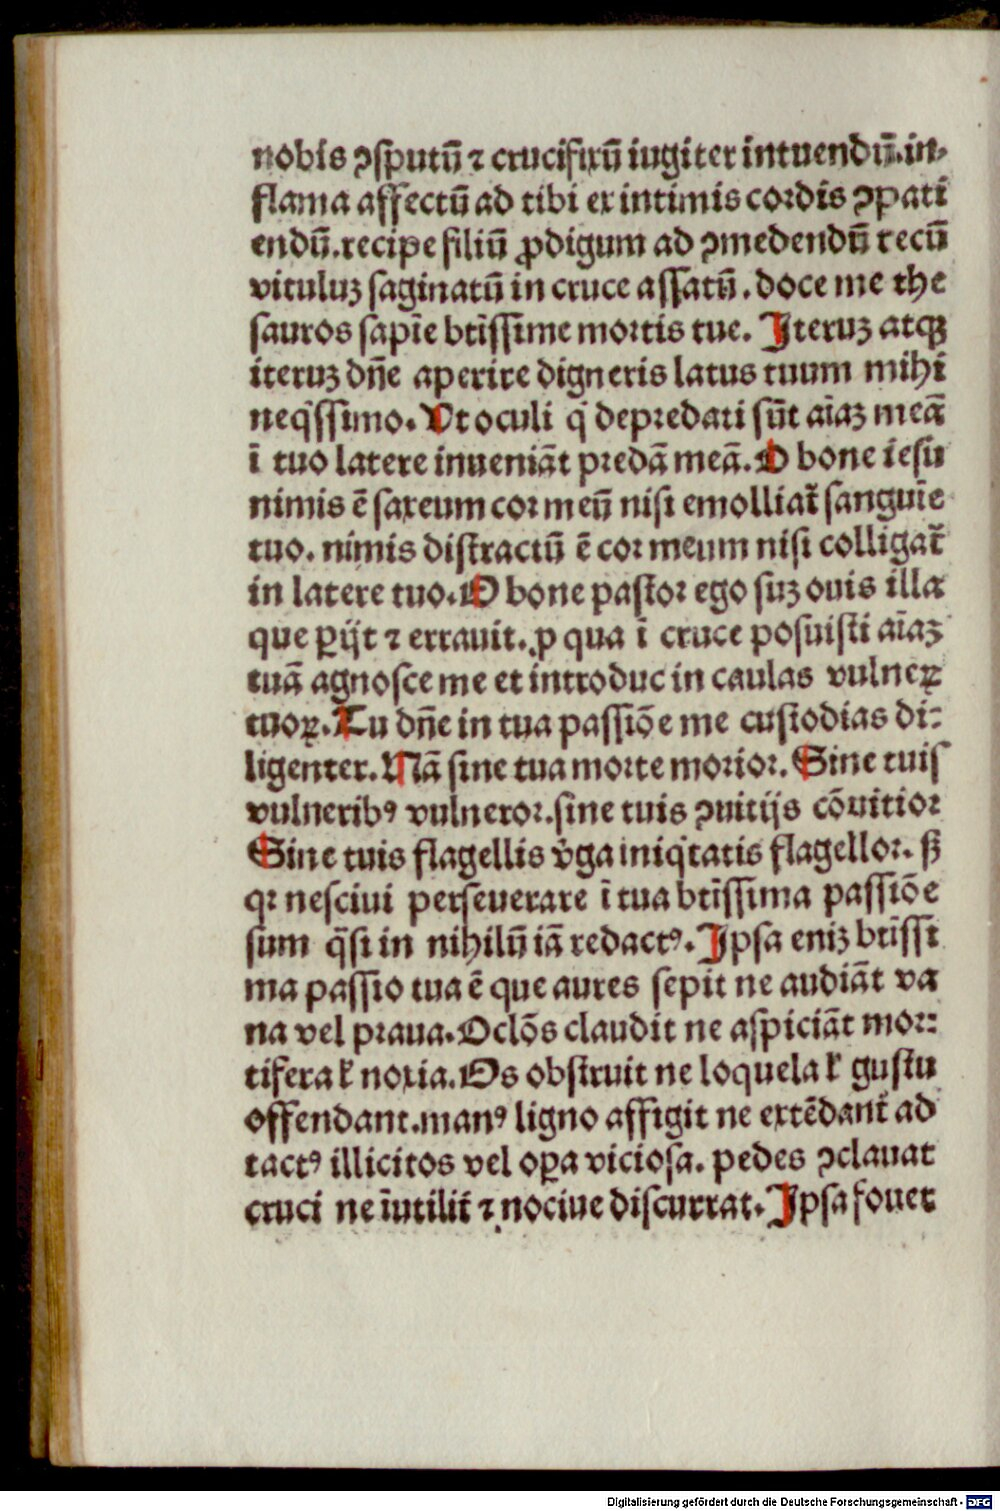 nobis ꝯsputū ⁊ crucifixū iugiter intuendū.in-
flama affectū ad tibi ex intimis cordis ꝯpati
endū.recipe filiū ꝓdigum ad ꝯmedendū tecū
vituluꝫ saginatū in cruce assatū.doce me the
sauros sapīe btīssīme mortis tue. Iteruꝫ atqꝫ
iteruꝫ dñe aperire digneris latus tuum mihi
neq̇ssimo. Ut oculi q̇ depredati sūt aīaꝫ meā
ī tuo latere inueniāt predā meā. O bone iesu
nimis ē saxeum cor meū nisi emolliat̄ sanguīe
tuo. nimis distractū ē cor meum nisi colligat̄
in latere tuo. O bone pastor ego suꝫ ouis illa
que ꝑijt ⁊ errauit. ꝓ qua ī cruce posuisti aīaꝫ
tuā agnosce me et introduc in caulas vulneꝝ
tuoꝝ. Tu dñe in tua passiōe me custodias di-
ligenter. Nā sine tua morte morior. Sine tuis
vulneribꝰ vulneror.sine tuis ꝯuitijs cōuitior
Sine tuis flagellis v̄ga iniq̇tatis flagellor. sꝫ
qꝛ nesciui perseuerare ī tua btīssima passiōe
sum q̄si in nihilū iā redactꝰ. Ipsa eniꝫ btīssi
ma passio tua ē que aures sepit ne audiāt va
na vel praua. Oclōs claudit ne aspiciāt mor-
tifera ł noxia. Os obstruit ne loquela ł gustu
offendant.manꝰ ligno affigit ne extēdant̄ ad
tactꝰ illicitos vel oꝑa viciosa. pedes ꝯclauat
cruci ne īutilit̄ ⁊ nociue discurrat. Ipsa fouet
Digitalisierung gefördert durch die Deutsche Forschungsgemeinschaft - DFG